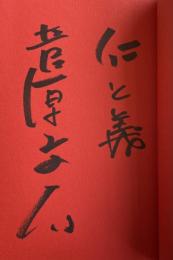 仁と義
菅原文太